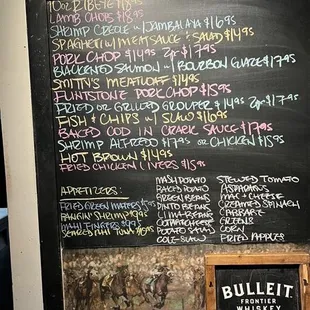 10oz RIBEYE $18.95
LAMB CHOPS $18.95
SHRIMP CREOLE w/JAMBALAYA $16.95
SPAGHETTI w/ MEAT SAUCE & SALAD $14.95
PORK CHOP $14.95 2pc $17.95
BLACKENED SALMON w/ BOURBON GLAZE $17.95
SMITTY'S MEATLOAF $14.95
FLINTSTONE PORK CHOP $15.95
FRIED OR GRILLED GROUPER $14.95 2pc $17.95
FISH & CHIPS w/ SLAW $16.95
BAKED COD IN CRACK SAUCE $17.95
SHRIMP ALFREDO $17.95 OR CHICKEN $15.95
HOT BROWN $14.95
FRIED CHICKEN LIVERS $15.95
APPETIZERS:
FRIED GREEN MATERS
BANGIN' SHRIMP
MAHI FINGERS
SEARED AHI TUNA
MASH POTATO
BAKED POTATO
GREEN BEANS
PINTO BEANS
LIMA BEANS
COTTAGE CHEESE
POTATO SALAD
COLE SLAW
STEWED TOMATO
ASPARAGUS
MAC & CHEESE
CREAMED SPINACH
CABBAGE
GREENS
CORN
FRIED APPLES
BULLEIT
FRONTIER
WHISKEY